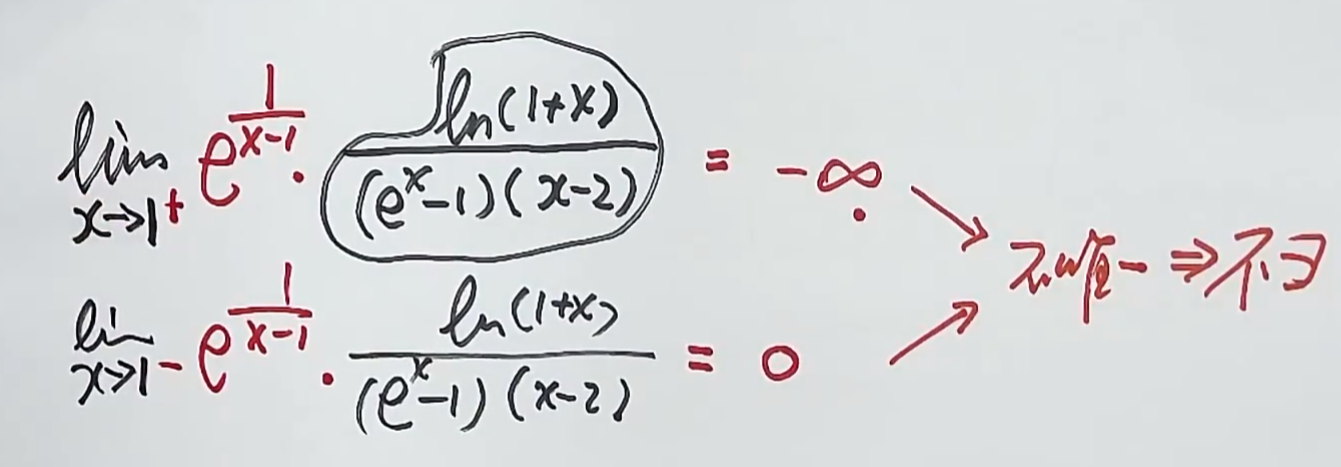 lim x→1⁺ e^{1/(x-1)} · ln(1+x) / (e^x-1)(x-2) = -∞ 不唯一 ⇒ 不∃
lim x→1⁻ e^{1/(x-1)} · ln(1+x) / (e^x-1)(x-2) = 0